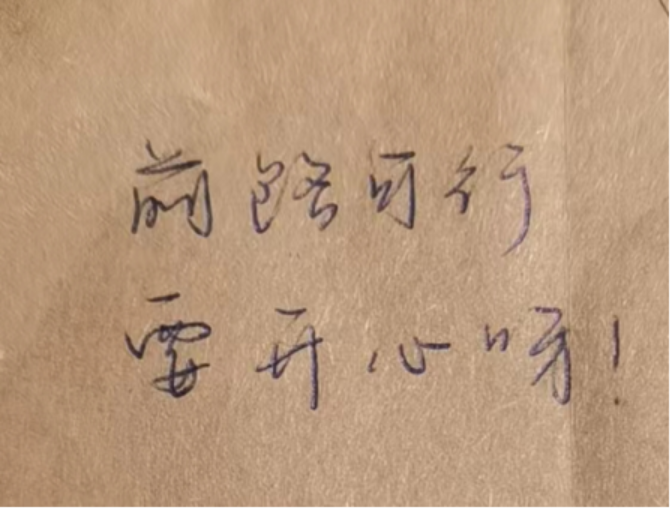 前路可行
要开心呀!